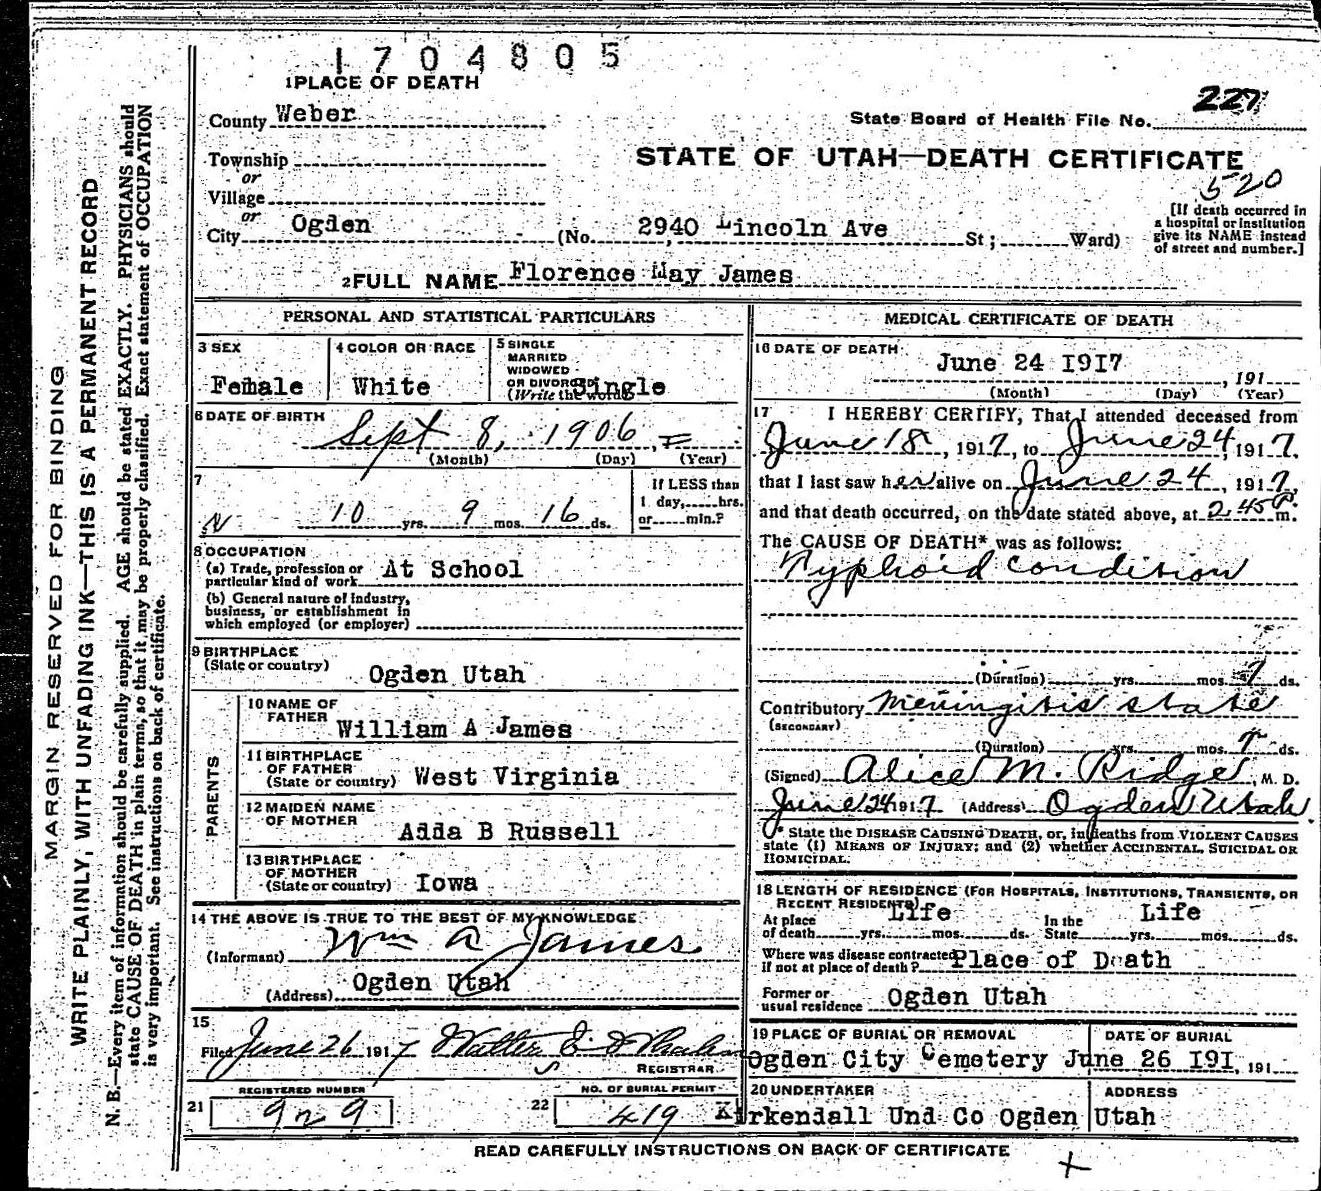 1704805
1 PLACE OF DEATH
County Weber
227
State Board of Health File No.
Township
STATE OF UTAH—DEATH CERTIFICATE
or
520
Village
or
City Ogden (No. 2940 Lincoln Ave St; Ward)
[If death occurred in
a hospital or institution
give its NAME instead
of street and number.]
2 FULL NAME Florence May James
PERSONAL AND STATISTICAL PARTICULARS
3 SEX
Female
4 COLOR OR RACE
White
5 SINGLE
MARRIED
WIDOWED
OR DIVORCED
(Write the word) Single
6 DATE OF BIRTH
Sept 8, 1906
(Month) (Day) (Year)
7
10 yrs. 9 mos. 16 ds.
If LESS than
1 day, hrs.
or min.?
8 OCCUPATION
(a) Trade, profession or
particular kind of work At School
(b) General nature of industry,
business, or establishment in
which employed (or employer)
9 BIRTHPLACE
(State or country)
Ogden Utah
PARENTS
10 NAME OF
FATHER William A James
11 BIRTHPLACE
OF FATHER
(State or country) West Virginia
12 MAIDEN NAME
OF MOTHER
Adda B Russell
13 BIRTHPLACE
OF MOTHER
(State or country) Iowa
14 THE ABOVE IS TRUE TO THE BEST OF MY KNOWLEDGE
(Informant) Wm A James
Ogden Utah
(Address)
15
Filed June 26 1917 Walter
REGISTRAR
REGISTERED NUMBER
21
NO. OF BURIAL PERMIT
22 419
MEDICAL CERTIFICATE OF DEATH
16 DATE OF DEATH
June 24 1917
, 191
(Month) (Day) (Year)
17 I HEREBY CERTIFY, That I attended deceased from
June 18, 1917, to June 24, 1917,
that I last saw her alive on June 24, 1917,
and that death occurred, on the date stated above, at 2.45 P. m.
The CAUSE OF DEATH* was as follows:
Typhoid condition
(Duration) yrs. mos. 7 ds.
Contributory Meningitis state
(SECONDARY)
(Duration) yrs. mos. ds.
(Signed) Alice M. Ridge, M. D.
June 24 1917 (Address) Ogden Utah.
* State the DISEASE CAUSING DEATH, or, in deaths from VIOLENT CAUSES
state (1) MEANS OF INJURY; and (2) whether ACCIDENTAL, SUICIDAL OR
HOMICIDAL.
18 LENGTH OF RESIDENCE (FOR HOSPITALS, INSTITUTIONS, TRANSIENTS, OR
RECENT RESIDENTS)
At place Life In the Life
of death yrs. mos. ds. State yrs. mos. ds.
Where was disease contracted
if not at place of death? Place of Death
Former or
usual residence Ogden Utah
19 PLACE OF BURIAL OR REMOVAL
Ogden City Cemetery
DATE OF BURIAL
June 26 191, 191
20 UNDERTAKER
Kirkendall Und Co Ogden
ADDRESS
Utah
READ CAREFULLY INSTRUCTIONS ON BACK OF CERTIFICATE
MARGIN RESERVED FOR BINDING
WRITE PLAINLY, WITH UNFADING INK—THIS IS A PERMANENT RECORD
N. B.—Every item of information should be carefully supplied. AGE should be stated EXACTLY. PHYSICIANS should
state CAUSE OF DEATH in plain terms, so that it may be properly classified. Exact statement of OCCUPATION
is very important. See instructions on back of certificate.